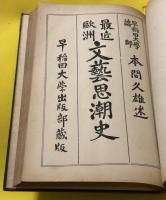 早稻田大學
講師
本間久雄述
最近
歐洲
文藝思潮史
早稻田大學出版部藏版